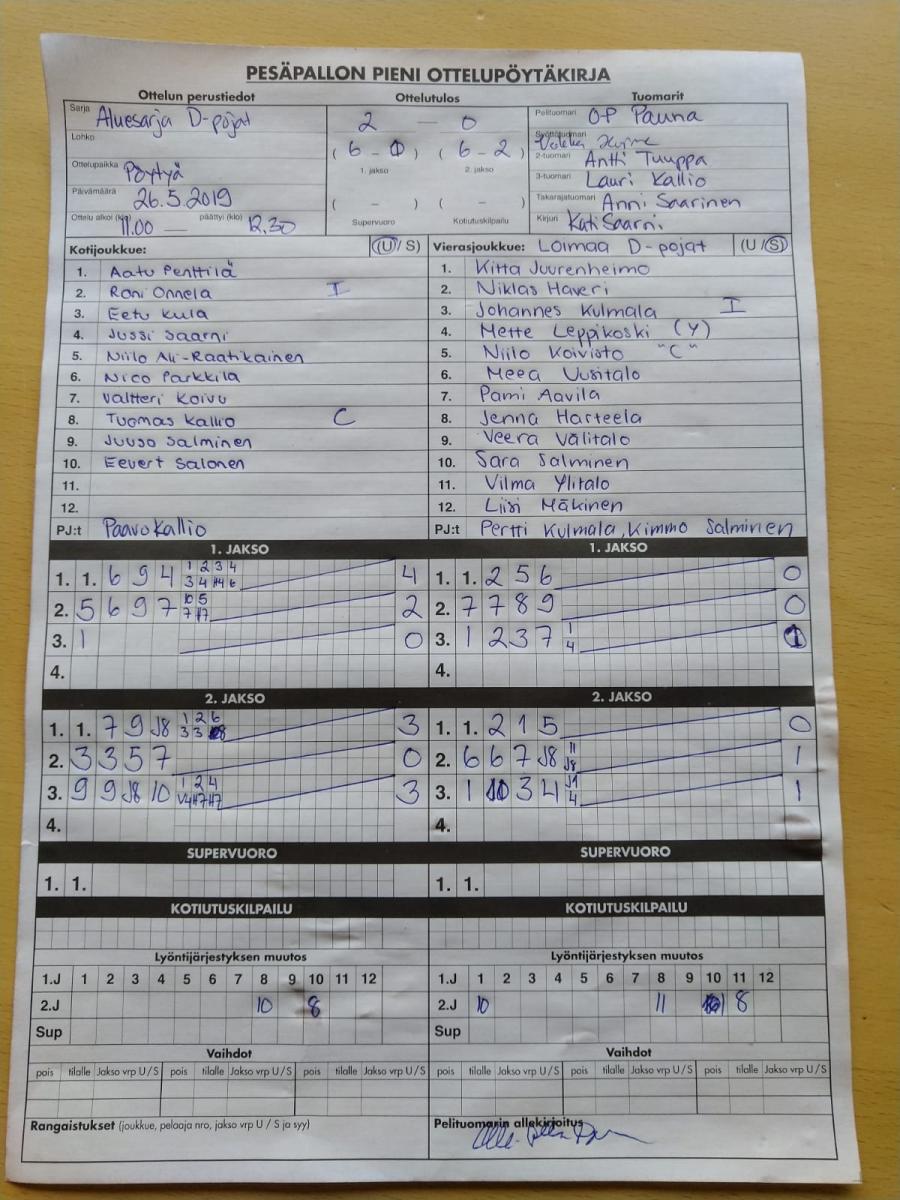 PESÄPALLON PIENI OTTELUPÖYTÄKIRJA
Ottelun perustiedot Ottelutulos Tuomarit
Sarja Aluesarja D-pojat 2 — 0 Pelituomari O-P Pauna
Lohko ( 6 - 0 ) ( 6 - 2 ) Syöttötuomari
1. jakso 2. jakso 2-tuomari Antti Tuuppa
Ottelupaikka Pöytyä 3-tuomari Lauri Kallio
Päivämäärä 26.5.2019 ( - ) ( - ) Takarajatuomari Anni Saarinen
Ottelu alkoi (klo) 11.00 — päättyi (klo) 12.30 Supervuoro Kotiutuskilpailu Kirjuri Kati Saarni
Kotijoukkue: (U / S) Vierasjoukkue: Loimaa D-pojat (U / S)
1. Aatu Penttilä 1. Kitta Juurenheimo
2. Roni Onnela I 2. Niklas Haveri
3. Eetu Kula 3. Johannes Kulmala I
4. Jussi Saarni 4. Mette Leppikoski (Y)
5. Niilo Ali-Raatikainen 5. Niilo Koivisto "C"
6. Nico Parkkila 6. Meea Uusitalo
7. Valtteri Koivu 7. Pami Aavila
8. Tuomas Kallio C 8. Jenna Harteela
9. Juuso Salminen 9. Veera Välitalo
10. Eevert Salonen 10. Sara Salminen
11. 11. Vilma Ylitalo
12. 12. Liisi Mäkinen
PJ:t Paavo Kallio PJ:t Pertti Kulmala, Kimmo Salminen
1. JAKSO 1. JAKSO
1. 1. 6 9 4 1 2 3 4 4 1. 1. 2 5 6 0
3 4 14 6
2. 5 6 9 7 10 5 2 2. 7 7 8 9 0
7 17
3. 1 0 3. 1 2 3 7 1 1
4
4. 4.
2. JAKSO 2. JAKSO
1. 1. 7 9 J8 1 2 6 3 1. 1. 2 1 5 0
3 3
2. 3 3 5 7 0 2. 6 6 7 J8 11 1
J8
3. 9 9 J8 10 1 2 4 3 3. 1 10 3 4 J1 1
4
4. 4.
SUPERVUORO SUPERVUORO
1. 1. 1. 1.
KOTIUTUSKILPAILU KOTIUTUSKILPAILU
Lyöntijärjestyksen muutos Lyöntijärjestyksen muutos
1.J 1 2 3 4 5 6 7 8 9 10 11 12 1.J 1 2 3 4 5 6 7 8 9 10 11 12
2.J 10 8 2.J 10 11 8
Sup Sup
Vaihdot Vaihdot
pois tilalle Jakso vrp U / S pois tilalle Jakso vrp U / S pois tilalle Jakso vrp U / S pois tilalle Jakso vrp U / S pois tilalle Jakso vrp U / S pois tilalle Jakso vrp U / S
Rangaistukset (joukkue, pelaaja nro, jakso vrp U / S ja syy) Pelituomarin allekirjoitus